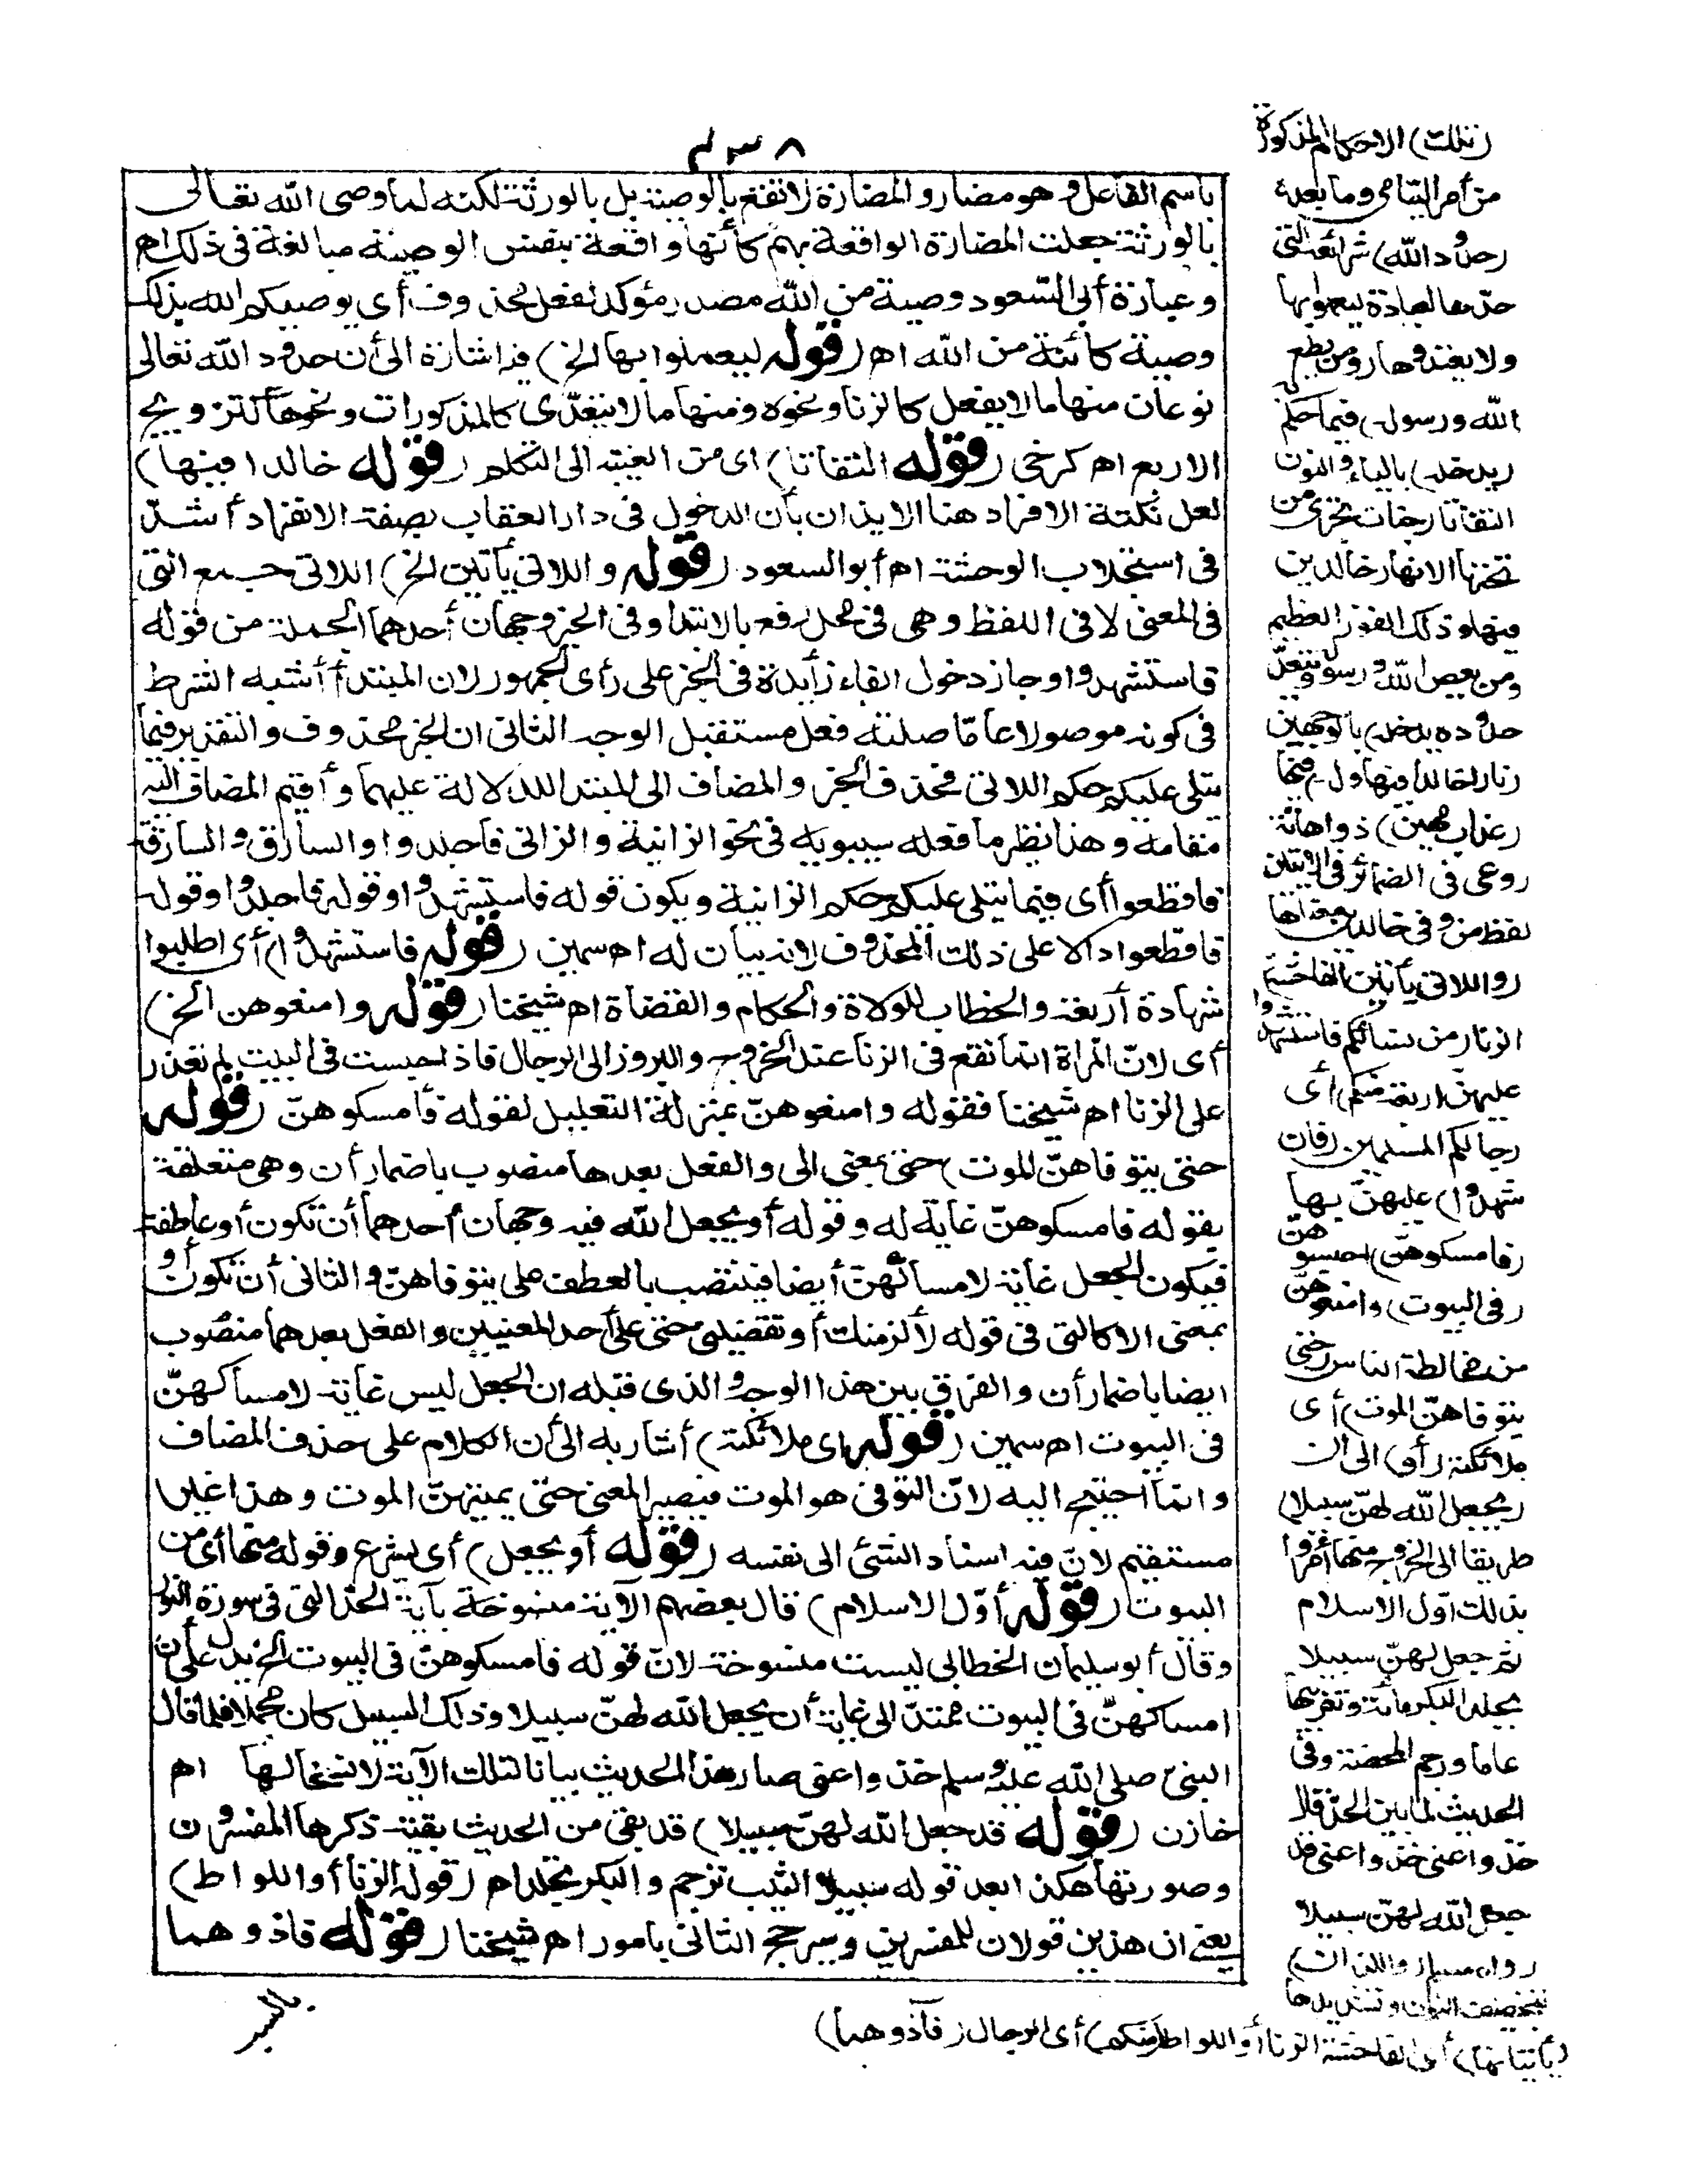 ٤٣٨
باسم الفاعل وهو مضار والمضارة لا تقع بالوصية بل بالورثة لكنه لما وصى الله تعالى
بالورثة جعلت المضارة الواقعة بهم كأنها واقعة بنفس الوصية مبالغة فى ذلك اهـ
وعبارة أبى السعود وصية من الله مصدر مؤكد لفعل محذوف أى يوصيكم الله بذلك
وصية كائنة من الله اهـ (قوله ليعملوا بها الخ) فيه اشارة الى أن حدود الله تعالى
نوعان منها ما لا يفعل كالزنا ونحوه ومنها ما لا يتعدّى كالمذكورات ونحوها كتزويج
الاربع اهـ كرخى (قوله التفاتا) اى من الغيبة الى التكلم (قوله خالدا فيها)
لعل نكتة الافراد هنا الايذان بأن الدخول فى دار العقاب بصفة الانفراد أشدّ
فى استجلاب الوحشة اهـ أبو السعود (قوله واللاتى يأتين الخ) اللاتى جمع التى
فى المعنى لا فى اللفظ وهى فى محل رفع بالابتدا وفى الخبر وجهان أحدهما الجملة من قوله
فاستشهدوا وجاز دخول الفاء زائدة فى الخبر على رأى الجمهور لان المبتدأ أشبه الشرط
فى كونه موصولا عامّا صلته فعل مستقبل الوجه الثانى ان الخبر محذوف والتقدير فيما
يتلى عليكم حكم اللاتى فحذف الخبر والمضاف الى المبتدا للدلالة عليهما وأقيم المضاف اليه
مقامه وهذا نظير ما فعله سيبويه فى نحو الزانية والزانى فاجلدوا والسارق والسارقة
فاقطعوا أى فيما يتلى عليكم حكم الزانية ويكون قوله فاستشهدوا وقوله فاجلدوا وقوله
فاقطعوا دالا على ذلك المحذوف لانه بيان له اهـ سمين (قوله فاستشهدوا) أى اطلبوا
شهادة أربعة والخطاب للولاة والحكام والقضاة اهـ شيخنا (قوله وامنعوهن الخ)
أى لانّ المرأة انما تقع فى الزنا عند الخروج والبروز الى الرجال فاذا حبست فى البيت لم تقدر
على الزنا اهـ شيخنا فقوله وامنعوهنّ بمنزلة التعليل لقوله فأمسكوهنّ (قوله
حتى يتوفاهنّ الموت) حتى بمعنى الى والفعل بعدها منصوب باضمار أن وهى متعلقة
بقوله فامسكوهنّ غاية له وقوله أو يجعل الله فيه وجهان أحدهما أن تكون أو عاطفة
فيكون الجعل غاية لامساكهنّ أيضا فينتصب بالعطف على يتوفاهنّ والثانى أن تكون أو
بمعنى الا كالتى فى قوله لألزمنك أو تقضينى حقى على أحد المعنيين والفعل بعدهما منصوب
ايضا باضمار أن والفرق بين هذا الوجه والذى قبله ان الجعل ليس غاية لامساكهنّ
فى البيوت اهـ سمين (قوله اى ملائكته) أشار به الى أن الكلام على حذف المضاف
وانما احتيج اليه لانّ التوفى هو الموت فيصير المعنى حتى يميتهنّ الموت وهذا غير
مستقيم لانّ فيه اسناد الشئ الى نفسه (قوله أو يجعل) أى يشرع وقوله منها أى من
البيوت (قوله أوّل الاسلام) قال بعضهم الآية منسوخة بآية الحدّ التى فى سورة النور
وقال أبو سليمان الخطابى ليست منسوخة لانّ قوله فامسكوهنّ فى البيوت الخ يدل على أن
امساكهنّ فى البيوت ممتدّ الى غاية أن يجعل الله لهنّ سبيلا وذلك السبيل كان مجملا فلما قال
النبىّ صلى الله عليه وسلم خذوا عنى صار هذا الحديث بيانا لتلك الآية لا نسخا لها اهـ
خازن (قوله قد جعل الله لهنّ سبيلا) قد بقى من الحديث بقية ذكرها المفسرون
وصورتها هكذا بعد قوله سبيلا الثيب ترجم والبكر تجلد اهـ (قوله الزنا أو اللواط)
يعنى ان هذين قولان للمفسرين وسيرجح الثانى بامور اهـ شيخنا (قوله فاذوهما
بالسب
(تلك) الاحكام المذكورة
من أمر اليتامى وما بعده
(حدود الله) شرائعه التى
حدّها لعباده ليعملوا بها
ولا يعتدوها (ومن يطع
الله ورسوله) فيما حكم به
(يدخله) بالياء والنون
التفاتا (جنات تجرى من
تحتها الانهار خالدين
فيها وذلك الفوز العظيم
ومن يعص الله ورسوله ويتعدّ
حدوده يدخله) بالوجهين
(نارا خالدا فيها وله) فيها
(عذاب مهين) ذو اهانة
روعى فى الضمائر فى الآيتين
لفظ من وفى خالدين معناها
(واللاتى يأتين الفاحشة)
الزنا (من نسائكم فاستشهدوا
عليهنّ أربعة منكم) أى
رجالكم المسلمين (فان
شهدوا) عليهنّ بها
(فامسكوهنّ) احبسوهنّ
(فى البيوت) وامنعوهنّ
من مخالطة الناس (حتى
يتوفاهنّ الموت) أى
ملائكته (أو) الى ان
(يجعل الله لهنّ سبيلا)
طريقا الى الخروج منها أمروا
بذلك أوّل الاسلام
ثم جعل لهنّ سبيلا
بجلد البكر مائة وتغريبها
عاما ورجم المحصنة وفى
الحديث لما بين الحدّ قال
خذوا عنى خذوا عنى قد
جعل الله لهنّ سبيلا
رواه مسلم (واللذان)
بتخفيف النون وتشديدها
(يأتيانها) أى الفاحشة الزنا أو اللواط (منكم) أى الرجال (فآذوهما)